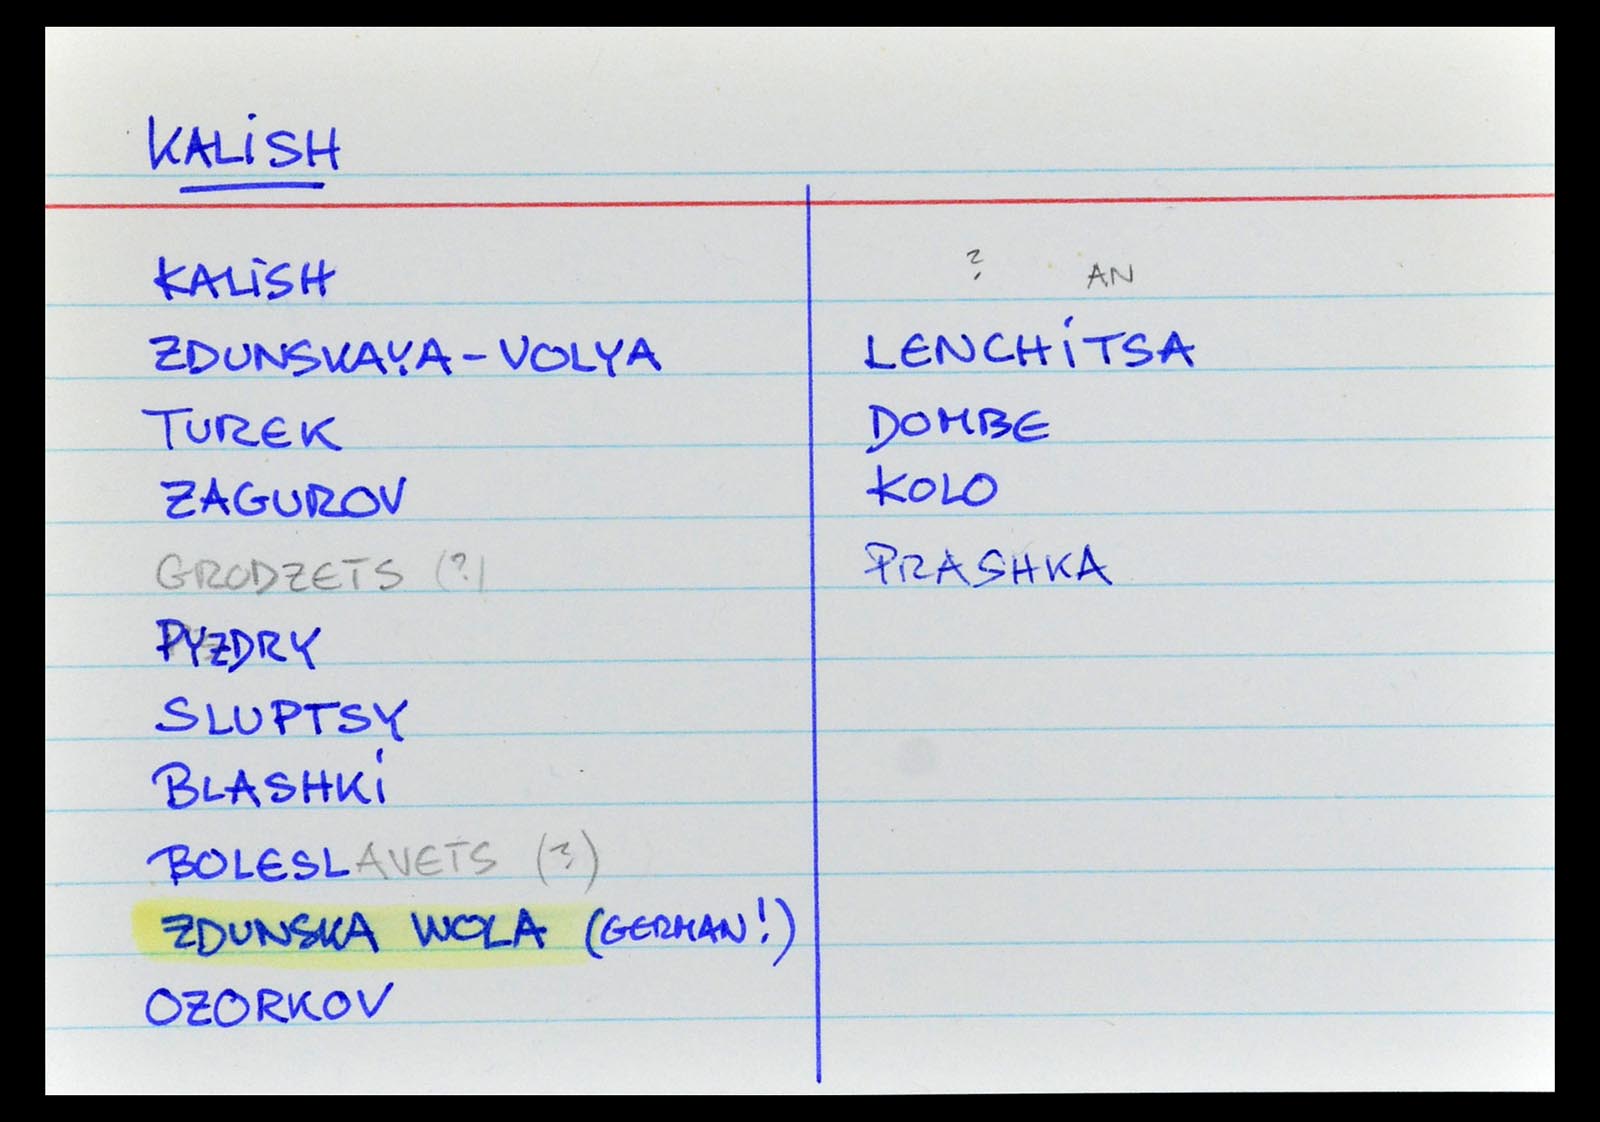 KALISH
KALISH
ZDUNSKAYA-VOLYA
TUREK
ZAGUROV
GRODZETS (?)
PYZDRY
SLUPTSY
BLASHKI
BOLESLAVETS (?)
ZDUNSKA WOLA (GERMAN!)
OZORKOV
? AN
LENCHITSA
DOMBE
KOLO
PRASHKA